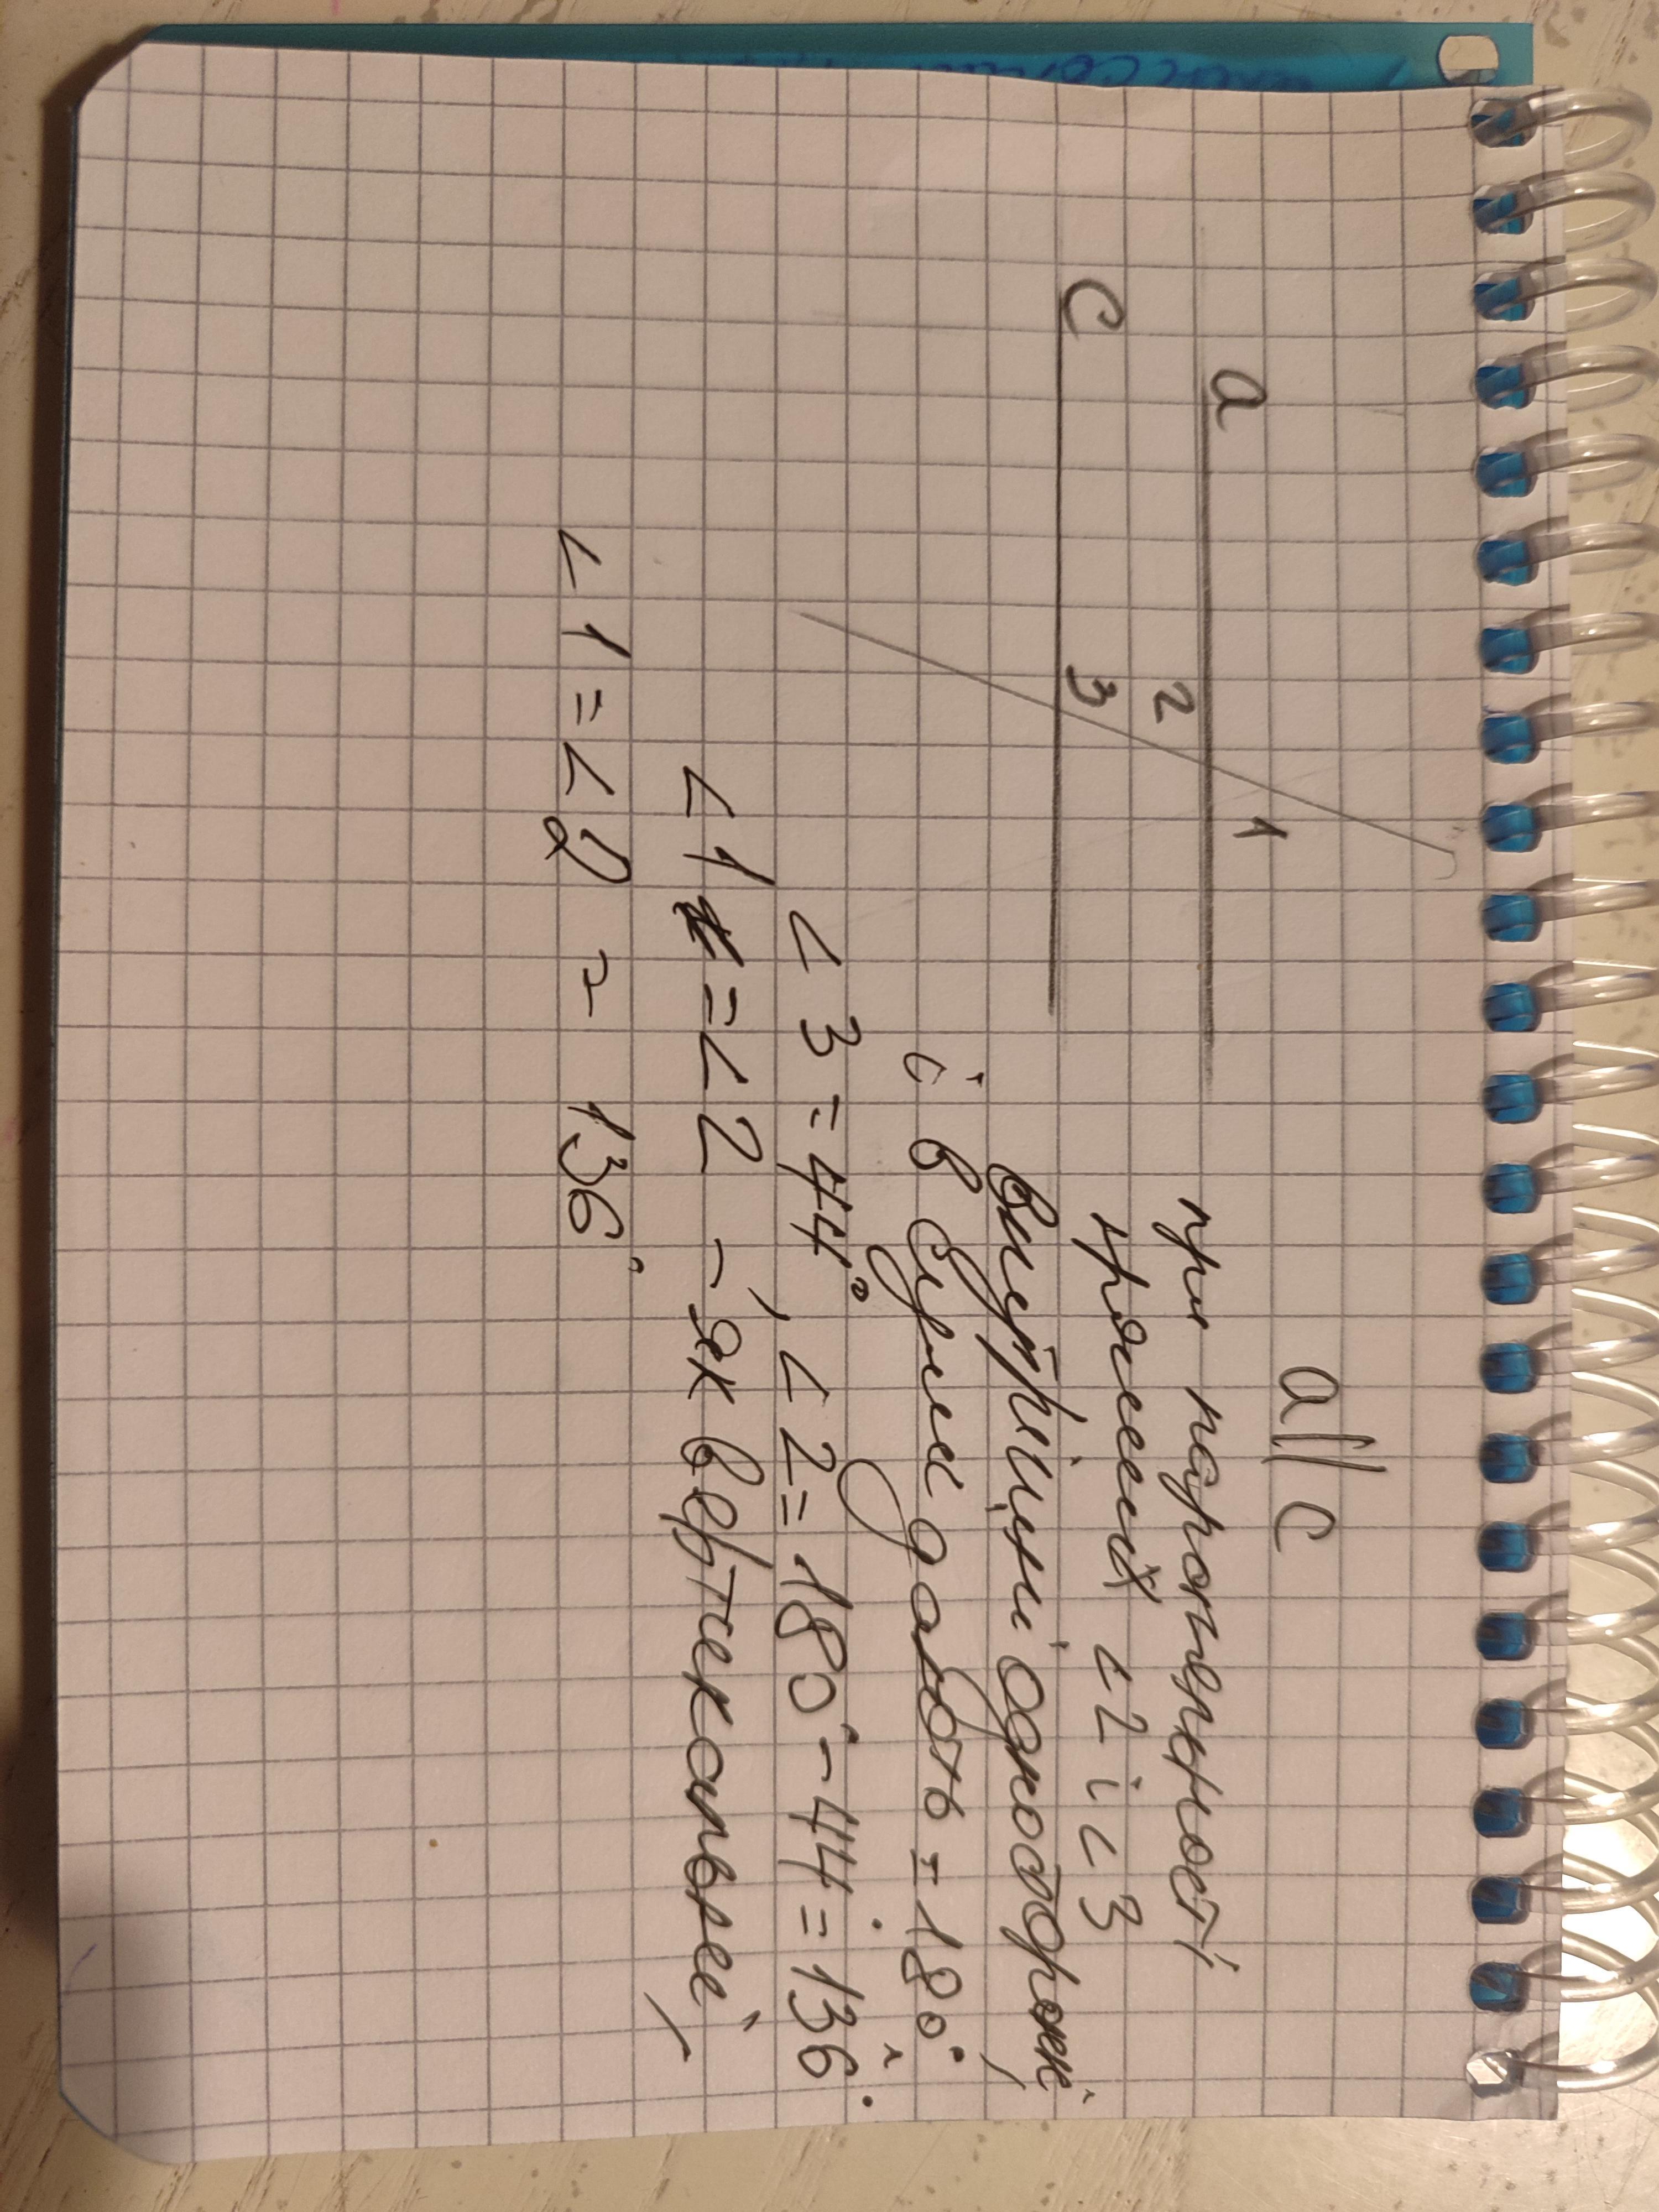 a || c
a
1
2
3
c
при паралельності
прямих ∠2 і ∠3
внутрішні односторонні,
і в сумі дають = 180°
∠3 = 44°, ∠2 = 180° - 44° = 136°.
∠1 = ∠2 - як вертикальні,
∠1 = ∠2 = 136°